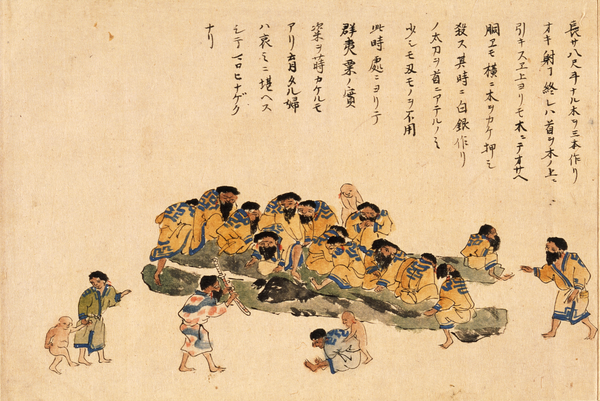 長サ八尺斗ナル木ヲ三本作リ
オキ射了終レハ首ヲ木ノ上ニ
引キスヱ上ヨリモ木ニテオサヘ
胴ヱモ横ニ木ヲカケ押シ
殺ス其時ニ白銀作リ
ノ太刀ヲ首ニアテルノミ
少シモ刃モノヲ不用
此時處ニヨリテ
群夷菓ノ實
粢ヲ蒔カケルモ
アリ育タル婦
ハ哀ミニ堪ヘス
シテマロヒナゲク
ナリ